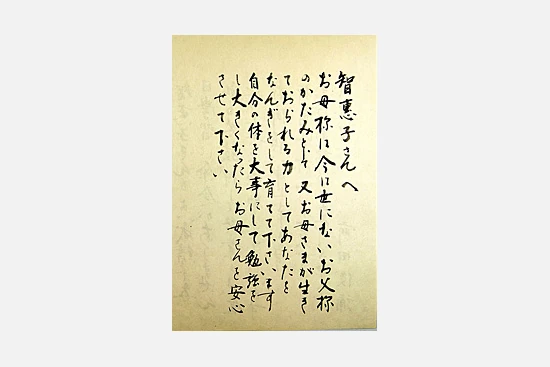 智恵子さんへ
お母様は今は世にないお父様
のかたみとして又お母さまが生き
ておられる力としてあなたを
なんぎをして育てて下さいます
自分の体を大事にして勉強を
し大きくなったらお母さんを安心
させて下さい